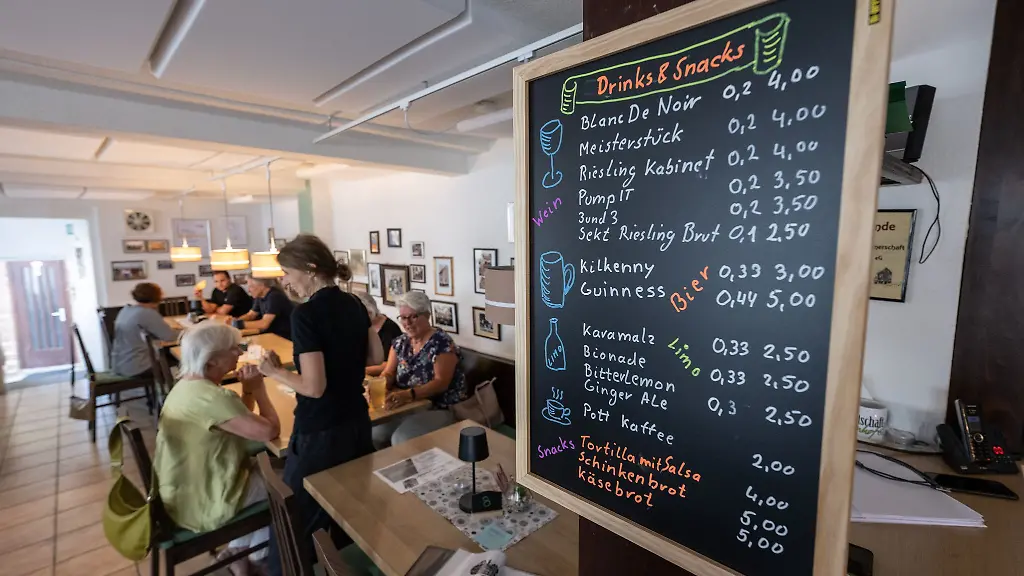 Drinks & Snacks
Blanc De Noir 0,2 4,00
Meisterstück 0,2 4,00
Riesling Kabinet 0,2 4,00
Pump IT 0,2 3,50
3und3 0,2 3,50
Wein
Sekt Riesling Brut 0,1 2,50
Kilkenny 0,33 3,00
Bier
Guinness 0,44 5,00
Karamalz 0,33 2,50
Limo
Bionade 0,33 2,50
BitterLemon
Ginger Ale 0,3 2,50
Pott Kaffee 2,00
Snacks
Tortilla mit Salsa 4,00
Schinkenbrot 5,00
käsebrot 5,00